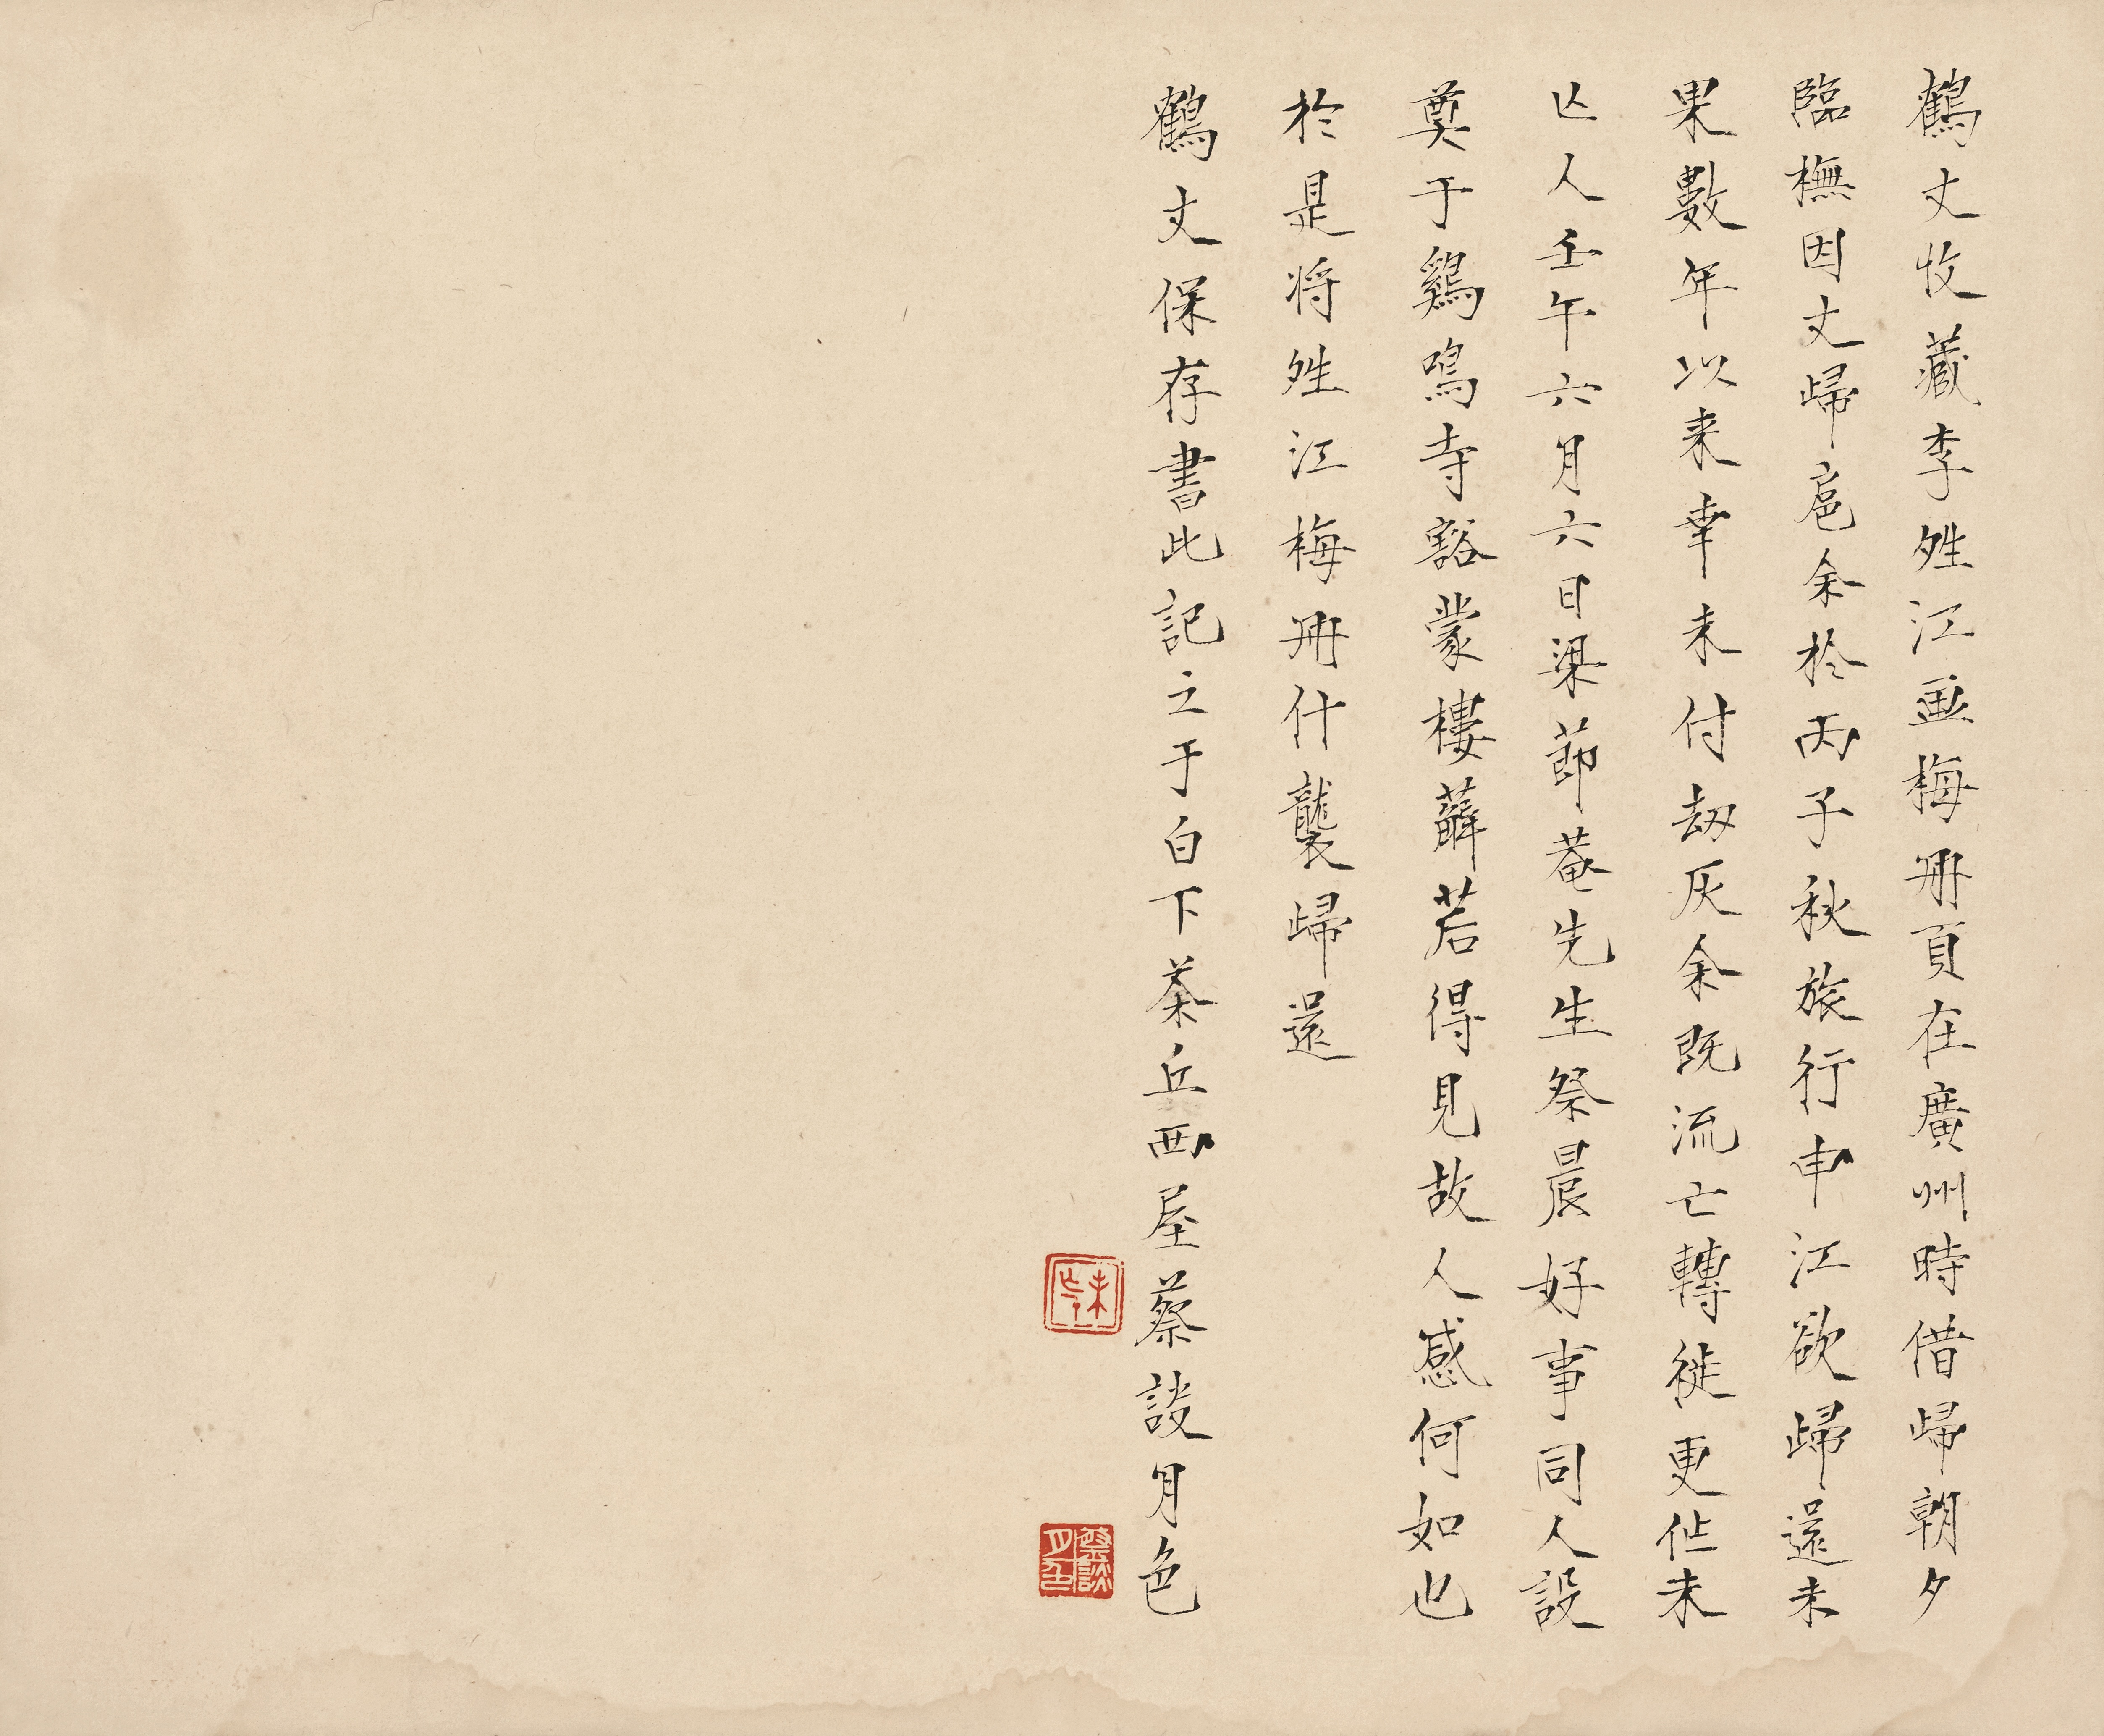 鶴丈收藏李夝江画梅冊頁在廣州時借歸朝夕
臨橅因丈歸扈余於丙子秋旅行申江欲歸還未
果數年以来幸未付刼灰余既流亡轉徙更作未
亾人壬午六月六日梁節菴先生祭晨好事同人設
奠于鷄鳴寺豁蒙樓薜若得見故人感何如也
於是将夝江梅冊什襲歸還
鶴丈保存書此記之于白下茶丘西屋蔡談月色
未亡人
蔡談月色